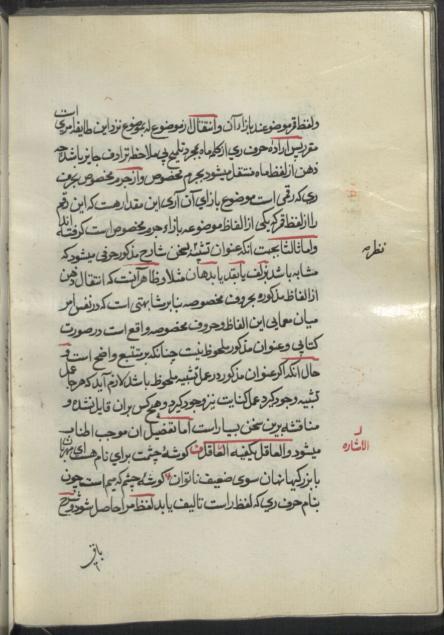 و لفظ قمر موضوعند بازاء آن و انتقال از موضوع له بموضوع نزد این طایفه امری است
مقرر پس اراده حرف ری از کلمه ماه بمجرد تلمیح بی ملاحظه ترادف جایز باشد چه
ذهن از لفظ ماه منتقل میشود بجرم مخصوص و از جرم مخصوص بحرف
ری که رقمی است موضوع بازای آن آری این مقدار هست که این
را از لفظ قمر که یکی از الفاظ موضوعه بازاء جرم مخصوص است گرفته اند
و اما ثالثا بجهت آنکه عنوان تشبیه در سخن شارح مذکور جزئی میشود که
مشابه باشد بزلف یا بقد یا بدهان مثلا و ظاهر آنست که انتقال ذهن
از الفاظ مذکوره بحروف مخصوصه بنابر مشابهتی است که در نفس امر
میان معمایی این الفاظ و حروف مخصوصه واقع است در صورت
کتابی و عنوان مذکور ملحوظ نیست چنانکه بر متتبع واضح است و
حال آنکه اگر عنوان مذکور در عمل تشبیه ملحوظ باشد لازم آید که هر جا عمل
تشبیه وجود گیرد عمل کنایت نیز وجود گیرد و هیچ کس بران قایل نشده و
مناقشه برین سخن بسیار است اما تفصیل آن موجب اطناب
میشود و العاقل یکفیه الاشاره گوشهٔ چشمت برای نام های
با بزرگیها نهان سوی ضعیف ناتوان گوشهٔ چشم که میم است چون
بنام حرف ری که لفظ راست تالیف یابد لفظ مرا حاصل شود و شرح
باقی
نظریه
الاشاره